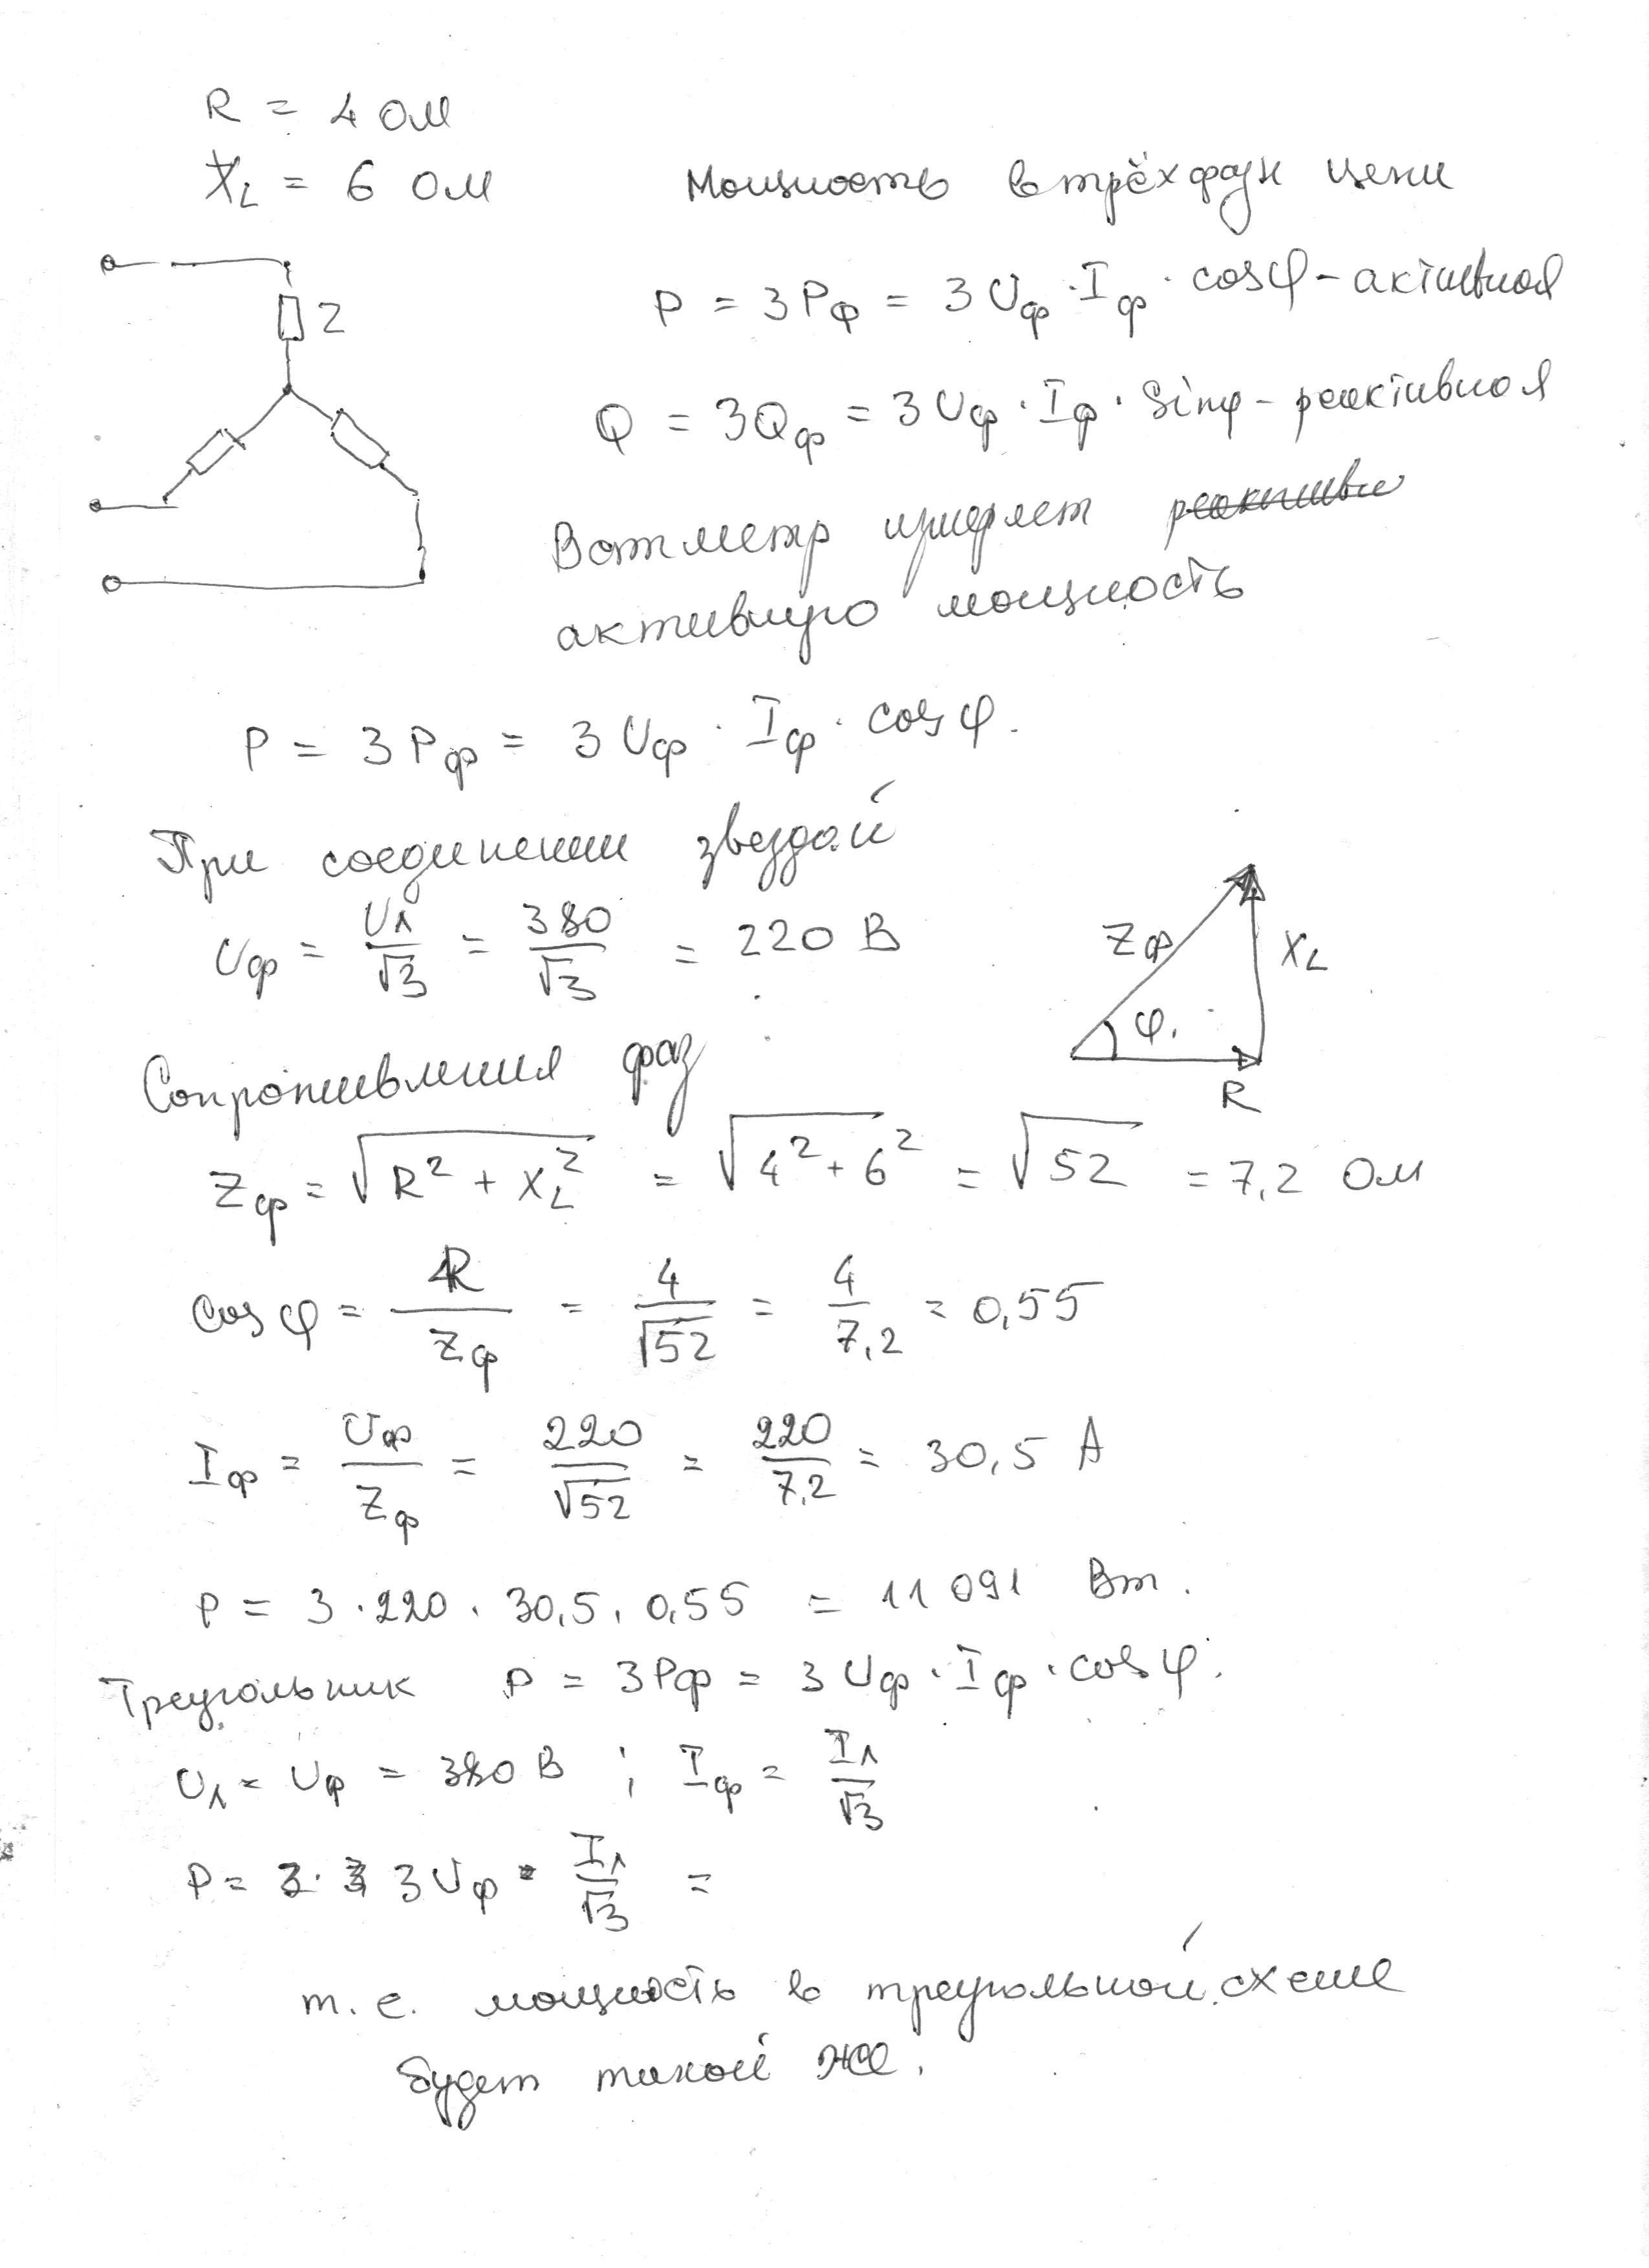 R = 4 Ом
X_L = 6 Ом
Мощность в трёхфазн цепи
Z
P = 3P_ф = 3U_ф · I_ф · cosφ - активная
Q = 3Q_ф = 3U_ф · I_ф · Sinφ - реактивная
Ватметр измеряет
активную мощность
P = 3P_ф = 3U_ф · I_ф · cosφ.
При соединении звездой
U_ф = U_л/√3 = 380/√3 = 220 В
Z_ф
X_L
φ.
R
Сопротивления фаз
Z_ф = √(R² + X_L²) = √(4² + 6²) = √52 = 7,2 Ом
cosφ = R/Z_ф = 4/√52 = 4/7,2 = 0,55
I_ф = U_ф/Z_ф = 220/√52 = 220/7,2 = 30,5 А
P = 3 · 220 · 30,5 · 0,55 = 11091 Вт.
Треугольник P = 3P_ф = 3U_ф · I_ф · cosφ.
U_л = U_ф = 380 В ; I_ф = I_л/√3
P = 3U_ф · I_л/√3 =
т.е. мощность в треугольной схеме
будет такой же.